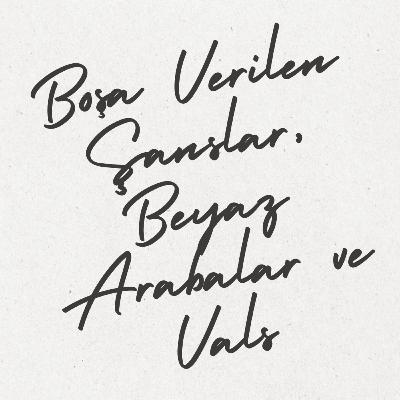 Boşa Verilen
Şanslar,
Beyaz
Arabalar ve
Vals